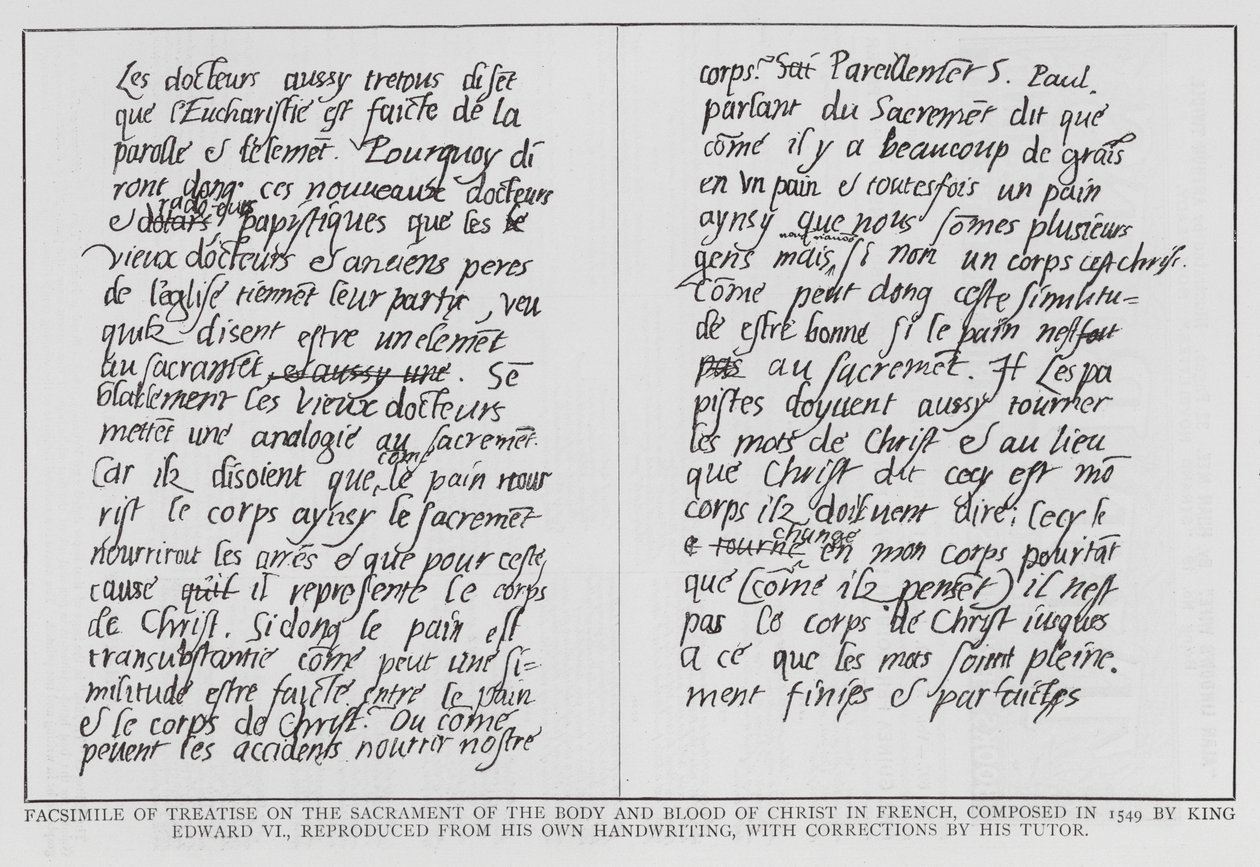 Les docteurs aussy tretous disēt
que l'Eucharistie est faicte de la
parolle & l'elemēt. Pourquoy di
ront donq ces nouueaux docteurs
radoteurs
& papistiques que les
vieux docteurs & anciens peres
de l'eglise tiennēt leur partie, veu
qu'ilz disent estre un elemēt
au sacramēt, & aussy une. Sē
blablement les vieux docteurs
mettēt une analogie au sacremēt.
côme
Car ilz disoient que, le pain nour
rist le corps aynsy le sacremēt
nourrirout les āmes & que pour ceste
cause qu'il il represente le corps
de Christ. Si donq le pain est
transubstantié cōme peut une si=
militude estre faicte entre le pain
& le corps de Christ. Ou cōme
peuent les accidents nourrir nostre
corps? Sai Pareillemēt S. Paul,
parlant du Sacremēt dit que
cōme il y a beaucoup de grais
en un pain & toutesfois un pain
aynsy que nous sōmes plusieurs
gens mais, si non un corps c'est christ.
Cōme peut donq ceste similitu=
de estre bonne si le pain n'est fait
pas au sacremēt. It Les pa
pistes doyuent aussy tourner
les mots de Christ & au lieu
que Christ dit cecy est mō
corps ilz doiuuent dire; Cecy le
change
e tourne en mon corps pourtāt
que (cōme ilz pensēt) il n'est
pas le corps de Christ iusques
a ce que les mots soint pleine.
ment finies & parfaictes
FACSIMILE OF TREATISE ON THE SACRAMENT OF THE BODY AND BLOOD OF CHRIST IN FRENCH, COMPOSED IN 1549 BY KING
EDWARD VI., REPRODUCED FROM HIS OWN HANDWRITING, WITH CORRECTIONS BY HIS TUTOR.